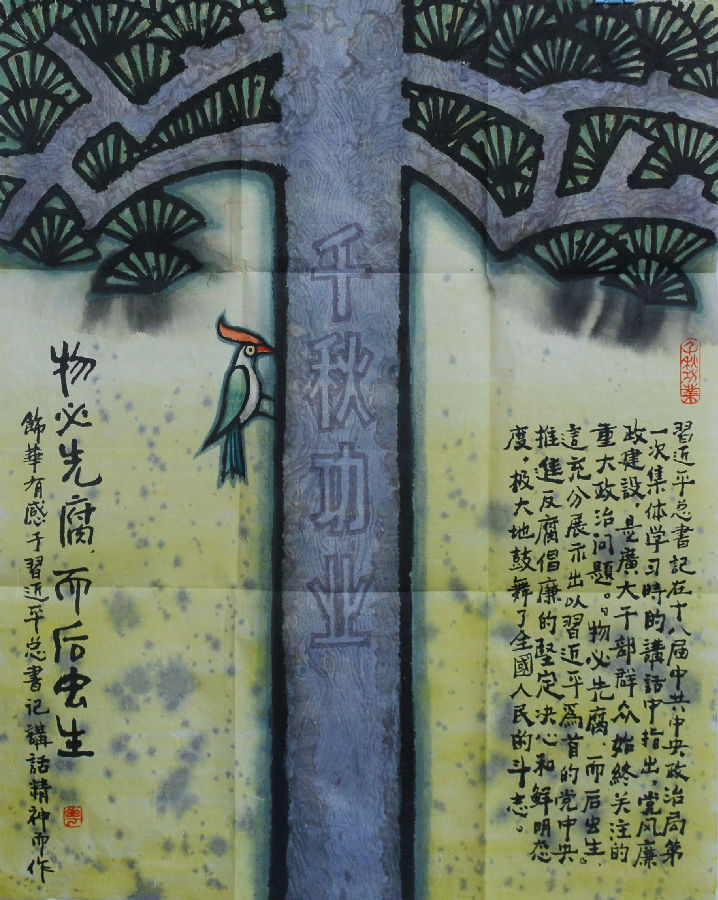 千秋功業
習近平总書記在十八届中共中央政治局第
一次集体学习時的講話中指出，党风廉
政建設，是廣大干部群众始終关注的
重大政治问题。“物必先腐，而后虫生”，
這充分展示出以習近平爲首的党中央
推進反腐倡廉的堅定决心和鮮明态
度，极大地鼓舞了全國人民的斗志。
千秋功业
物必先腐，而后虫生
飾華有感于習近平总書记講話精神而作